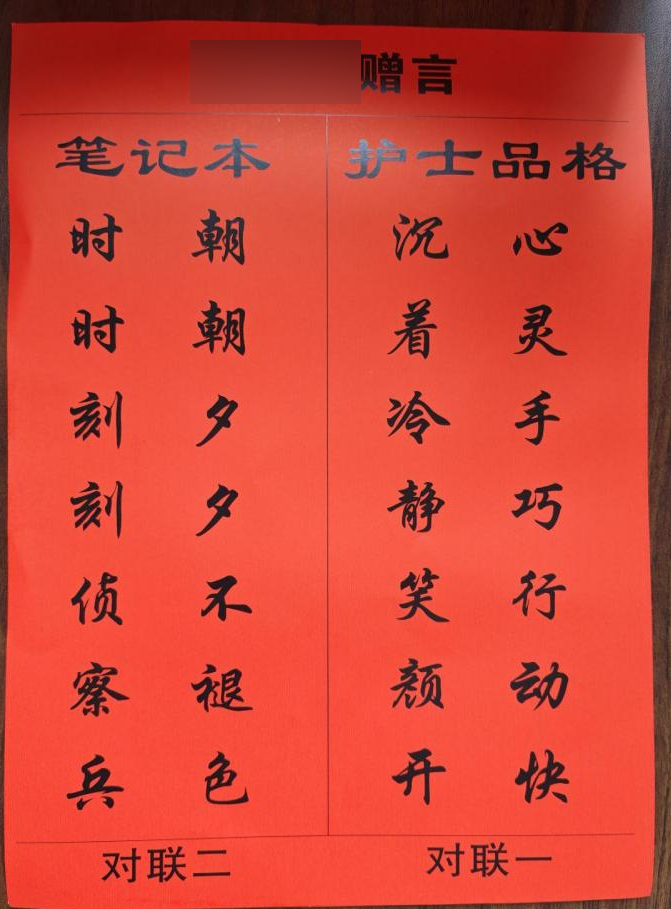 赠言
护士品格
心灵手巧行动快
沉着冷静笑颜开
对联一
笔记本
朝朝夕夕不褪色
时时刻刻侦察兵
对联二